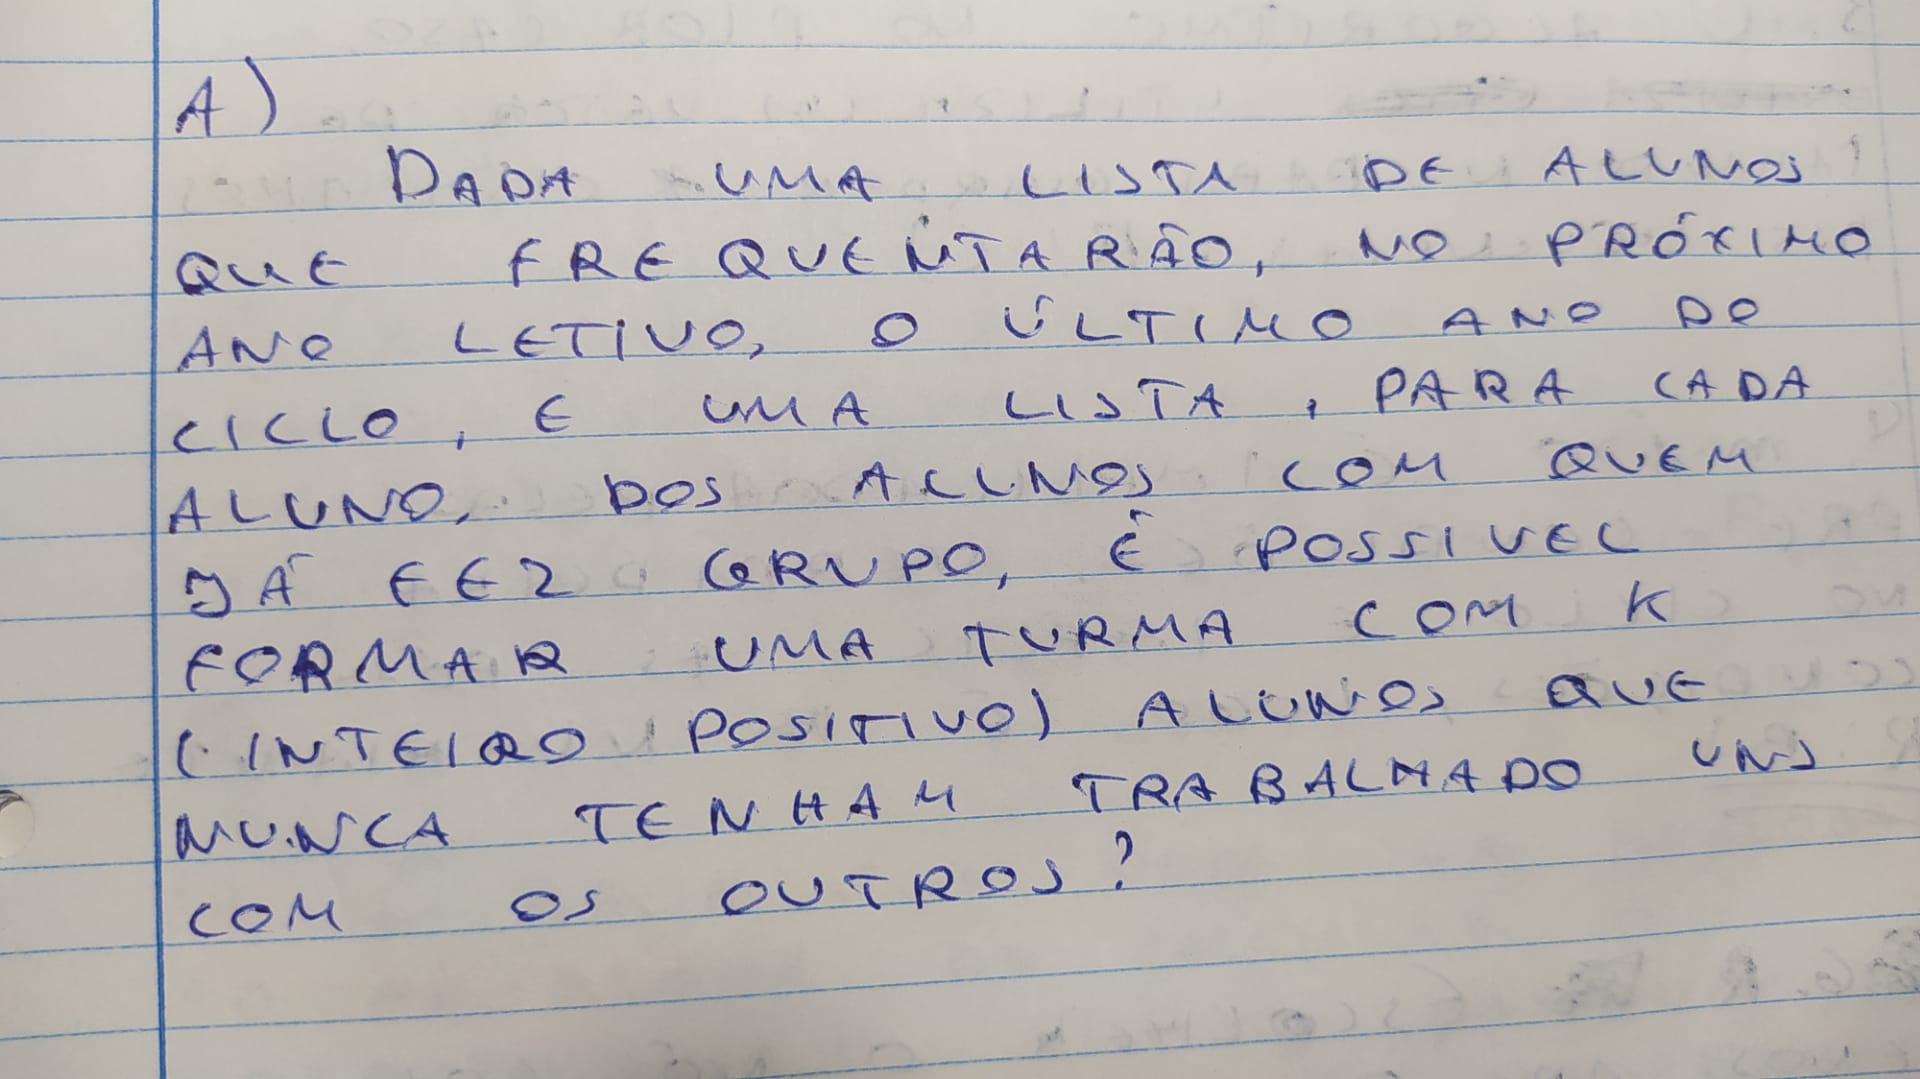 A)
DADA UMA LISTA DE ALUNOS
QUE FREQUENTARÃO, NO PRÓXIMO
ANO LETIVO, O ÚLTIMO ANO DO
CICLO, E UMA LISTA, PARA CADA
ALUNO, DOS ALUNOS COM QUEM
JÁ FEZ GRUPO, É POSSIVEL
FORMAR UMA TURMA COM K
(INTEIRO POSITIVO) ALUNOS QUE
NUNCA TENHAM TRABALHADO UNS
COM OS OUTROS?